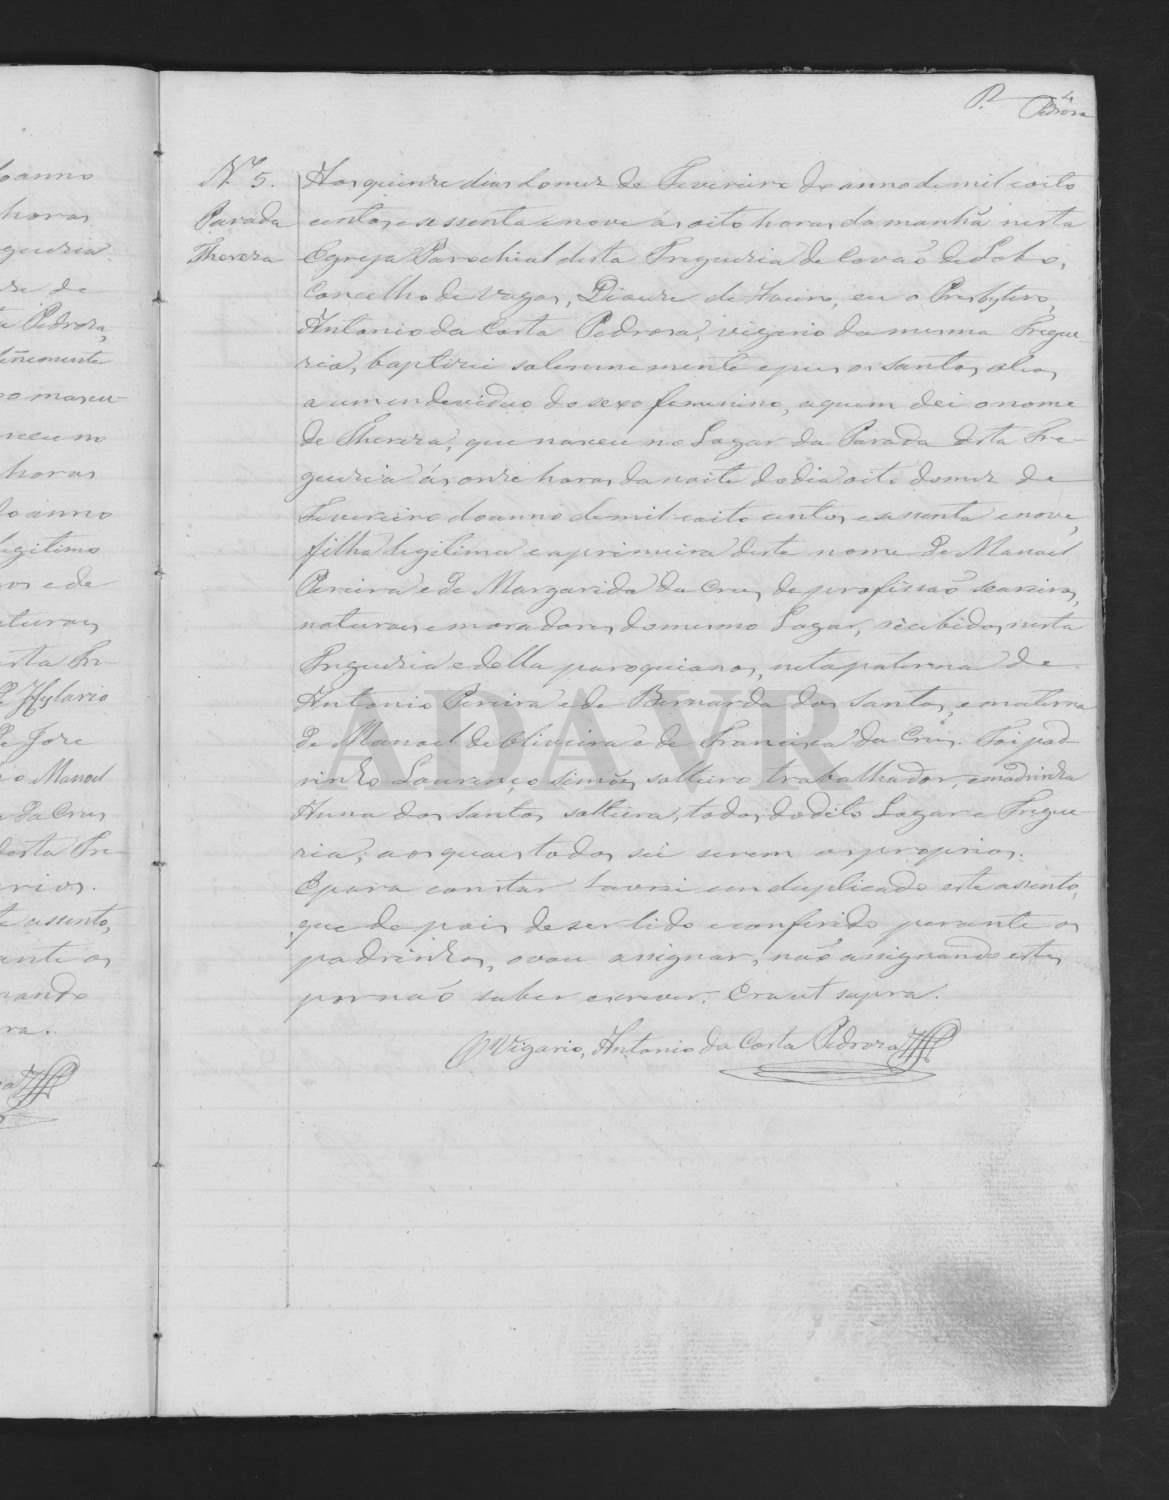 R. 4
Pedroza
Nº 5.
Parada
Thereza
Aos quinze dias do mez de Fevereiro do anno de mil e oito
centos e sessenta e nove ás oito horas da manhã nesta
Egreja Parochial desta Freguezia de Covaõ de Lobo,
Concelho de Vagos, Diocese de Aveiro, eu o Presbytero,
Antonio da Costa Pedroza, vigario da mesma Fregue-
zia, baptizei solemnemente e puz os santos oleos
a um endeviduo do sexo femenino, a quem dei o nome
de Thereza, que nasceu no Lugar da Parada desta Fre-
guezia ás onze horas da noite do dia oito do mez de
Fevereiro do anno de mil e oito centos e sessenta e nove,
filha legitima e a primeira deste nome de Manoel
Pereira e de Margarida da Cruz, de profissaõ seareiros,
naturaes e moradores do mesmo Lugar, recebidos nesta
Freguezia e della paroquianos, neta paterna de
Antonio Pereira e de Bernarda dos Santos, e materna
de Manoel de Oliveira e de Francisca da Cruz. Foi pad-
rinho Lourenço Simões, solteiro trabalhador, e madrinha
Anna dos Santos solteira, todos do dito Lugar e Fregue-
zia, aos quaes todos sei serem os proprios.
E para constar lavrei em duplicado este assento,
que depois de ser lido e conferido perante os
padrinhos, o vou assignar, naõ assignando estes
por naõ saber escrever. Era ut supra.
O Vigario, Antonio da Costa Pedroza
ADAVR
do anno
horas
guezia
ze de
ta Pedroza,
lemnemente
o mascu-
nasceu no
horas
do anno
legitimo
os e de
naturaes
esta Fre-
de Hylario
de Joze
o Manoel
da Cruz
desta Fre-
rios.
te assento,
ante os
nando
ra.